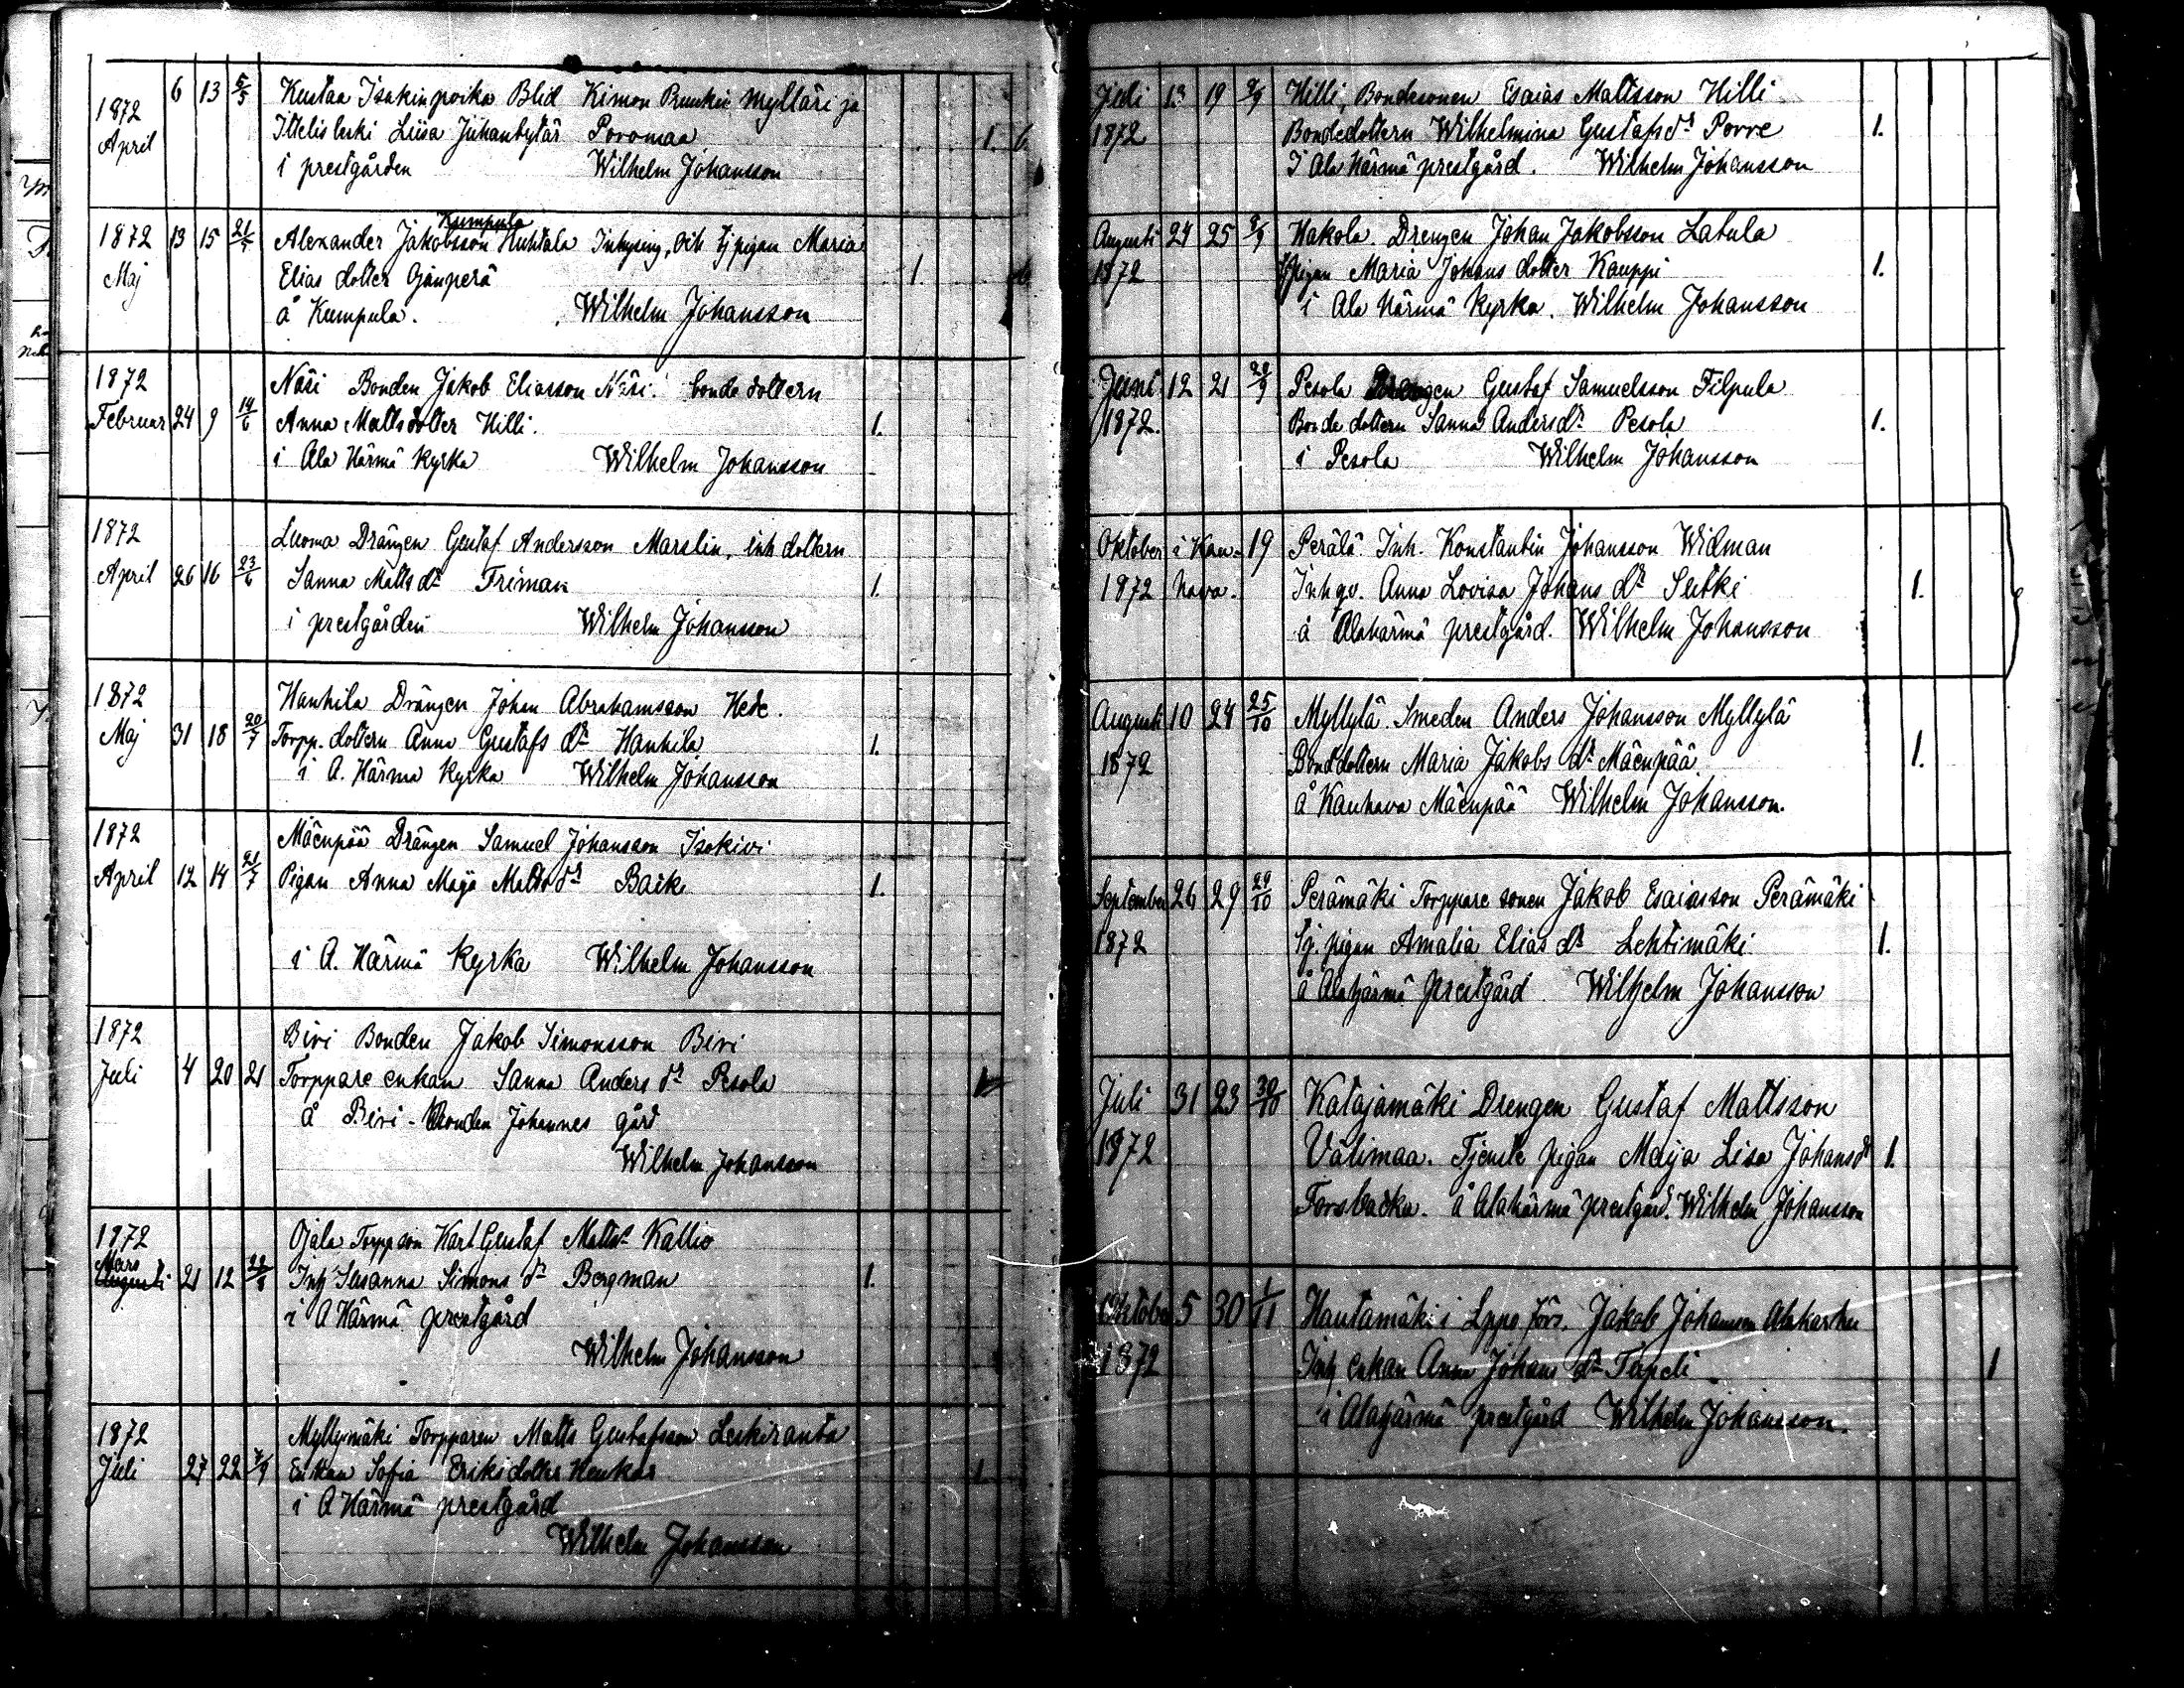 6 13 5/5 Kustaa Isakinpoika Blid Kimon Pruukin mylläri ja
1872 Ittelisleski Liisa Juhantytär Poromaa 1. 6
April i prestgården Wilhelm Johansson
Kumpula
1872 13 15 21/5 Alexander Jakobsson Huhtala Inhysing, och tjpigan Maria
Maj Elias dotter Ojanperä 1.
å Kumpula. Wilhelm Johansson
1872 Näsi Bonden Jakob Eliasson Näsi. bonde dottern
Februar 24 9 14/6 Anna Mattsdotter Hilli. 1.
i Ala Härmä kyrka Wilhelm Johansson
1872 Luoma Drängen Gustaf Andersson Marslin. inh dottern
April 26 16 23/6 Sanna Matts dr Friman 1.
i prestgården Wilhelm Johansson
1872 Hanhila Drängen Johan Abrahamsson Hede.
Maj 31 18 20/7 Torpp. dottern Anna Gustafs dr Hanhila 1.
i A. Härmä kyrka Wilhelm Johansson
1872 Mäenpää Drängen Samuel Johansson Isokivi
April 12 14 21/7 Pigan Anna Maja Matts dr Backe 1.
i A. Härmä kyrka Wilhelm Johansson
1872 Biri Bonden Jakob Simonsson Biri
Juli 4 20 21 Torppare enkan Sanna Anders dr Pesola 1
å Biri - Bonden Johannes gård
Wilhelm Johansson
1872 Ojala Torppson Karl Gustaf Mattss Kallio
Mars
Augusti 21 12 22/8 Inh Susanna Simons dr Bergman 1.
i A Härmä prestgård
Wilhelm Johansson
1872 Myllymäki Torpparen Matts Gustafsson Leskiranta
Juli 27 22 7/9 Enkan Sofia Eriksdotter Henkas 1
i A Härmä prestgård
Wilhelm Johansson
Juli 13 19 8/9 Hilli, Bondesonen Esaias Mattsson Hilli
1872 Bondedottern Wilhelmina Gustafsdr Porre 1.
I Ala Härmä prestgård. Wilhelm Johansson
Augusti 24 25 8/9 Hakola. Drengen Johan Jakobsson Latula
1872 Tjpigan Maria Johans dotter Kauppi 1.
i Ala Härmä kyrka. Wilhelm Johansson
Juni 12 21 22/9 Pesola Drengen Gustaf Samuelsson Filpula
1872. Bonde dottern Sanna Andersdr Pesola 1.
i Pesola Wilhelm Johansson
Oktober i Kau- 19 Perälä Inh. Konstantin Johansson Widman
1872 hava. Inhqv. Anna Lovisa Johans dr Sutki 1.
å Alahärmä prestgård. Wilhelm Johansson
Augusti 10 24 25/10 Myllylä. Smeden Anders Johansson Myllylä
1872 Bonddottern Maria Jakobs dr Mäenpää 1.
å Kauhava Mäenpää Wilhelm Johansson.
September 26 29 29/10 Perämäki Torppare sonen Jakob Esaiasson Perämäki
1872 tj. pigan Amalia Elias dr Lehtimäki 1.
å Alahärmä prestgård Wilhelm Johansson
Juli 31 23 30/10 Katajamäki Drengen Gustaf Mattsson
1872 Välimaa. Tjenste pigan Maija Lisa Johansdr 1.
Forsbacka. å Alahärmä prestgård. Wilhelm Johansson
Oktober 5 30 1/11 Hautamäki i Lppo förs. Jakob Johansson Alakarhu
1872 Inh enkan Anna Johans dr Tapeli 1
i Alahärmä prestgård Wilhelm Johansson.